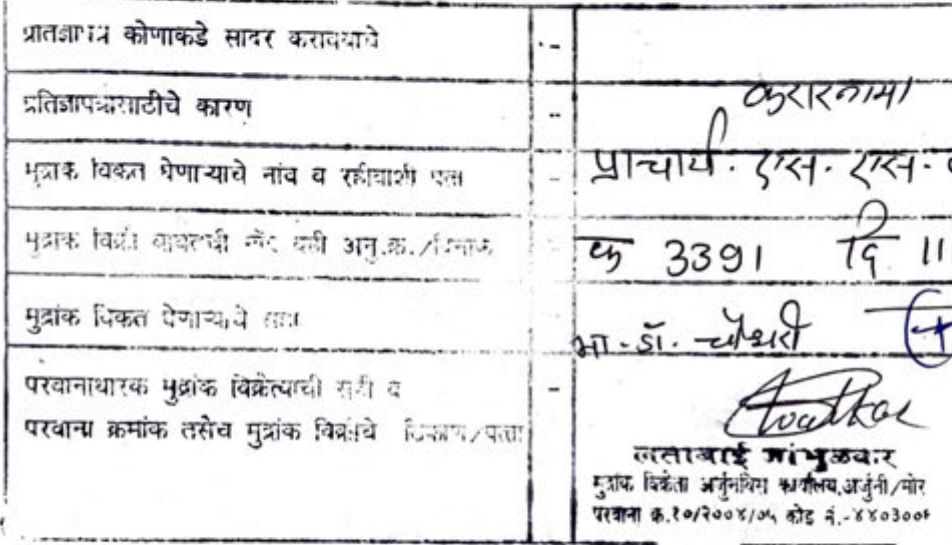 प्रतिज्ञापत्र कोणाकडे सादर करावयाचे --
प्रतिज्ञापत्रासाठीचे कारण -- करारनामा
मुद्रांक विकत घेणाऱ्याचे नांव व रहीवाशी पत्ता - प्राचार्य. एस. एस.
मुद्रांक विक्री बाबतची नोंद वही अनु.क्र./दिनांक - क 3391 दि 11
मुद्रांक विकत घेणाऱ्याचे - भा-डॉ. चौधरी
परवानाधारक मुद्रांक विक्रेत्याची सही व -
परवाना क्रमांक तसेच मुद्रांक विक्रीचे ठिकाण/पत्ता
लताबाई जांभुळकर
मुद्रांक विक्रेता कार्यालय, अर्जुनी/मोर
परवाना क्र.१०/२००४/०५ कोड नं.-